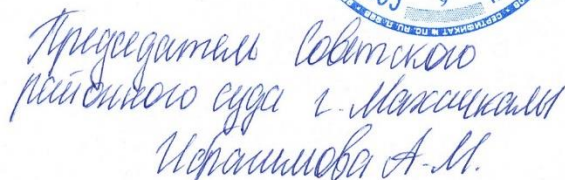 Председатель Советского
районного суда г. Махачкалы
Ибрагимова А-М.